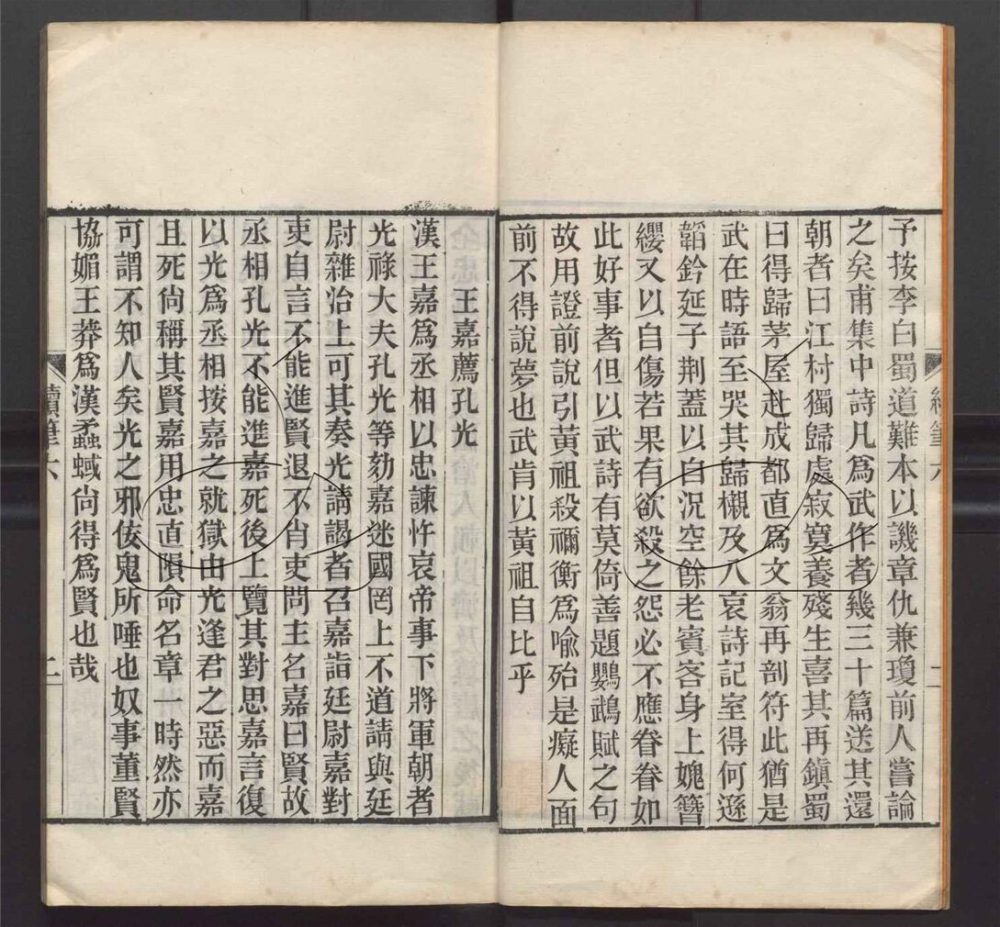 予按李白蜀道難本以譏章仇兼瓊前人嘗論
之矣甫集中詩凡爲武作者幾三十篇送其還
朝者曰江村獨歸處寂寞養殘生喜其再鎭蜀
曰得歸茅屋赴成都直爲文翁再剖符此猶是
武在時語至哭其歸櫬及八哀詩記室得何遜
韜鈐延子荆蓋以自况空餘老賓客身上媿簪
纓又以自傷若果有欲殺之怨必不應眷眷如
此好事者但以武詩有莫倚善題鸚鵡賦之句
故用證前說引黃祖殺禰衡爲喻殆是癡人面
前不得說夢也武肯以黃祖自比乎
王嘉薦孔光
漢王嘉爲丞相以忠諫忤哀帝事下將軍朝者
光祿大夫孔光等劾嘉迷國罔上不道請與廷
尉雜治上可其奏光請謁者召嘉詣廷尉嘉對
吏自言不能進賢退不肖吏問主名嘉曰賢故
丞相孔光不能進嘉死後上覽其對思嘉言復
以光爲丞相按嘉之就獄由光逢君之惡而嘉
且死尙稱其賢嘉用忠直隕命名章一時然亦
可謂不知人矣光之邪佞鬼所唾也奴事董賢
協媚王莽爲漢蟊蜮尙得爲賢也哉
續筆六
二